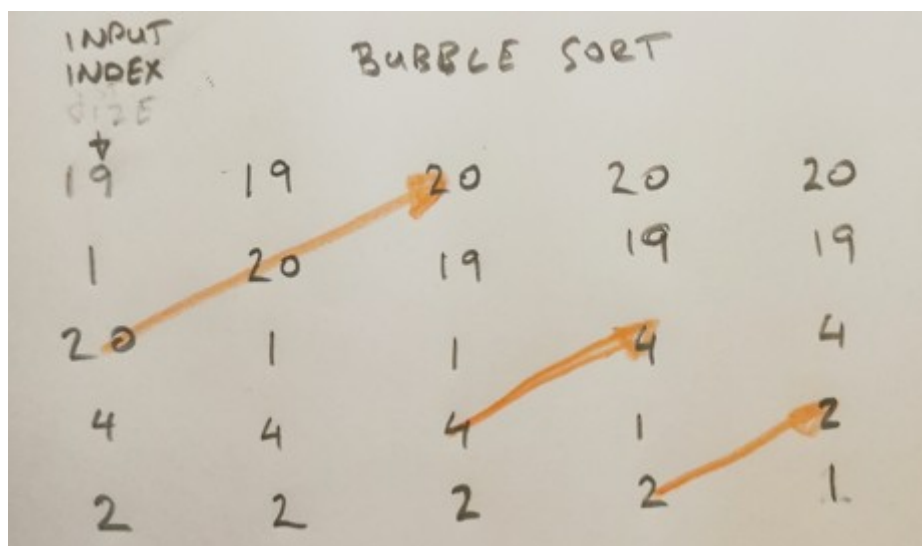 INPUT
INDEX
BUBBLE SORT
SIZE
19 19 20 20 20
1 20 19 19 19
20 1 1 4 4
4 4 4 1 2
2 2 2 2 1